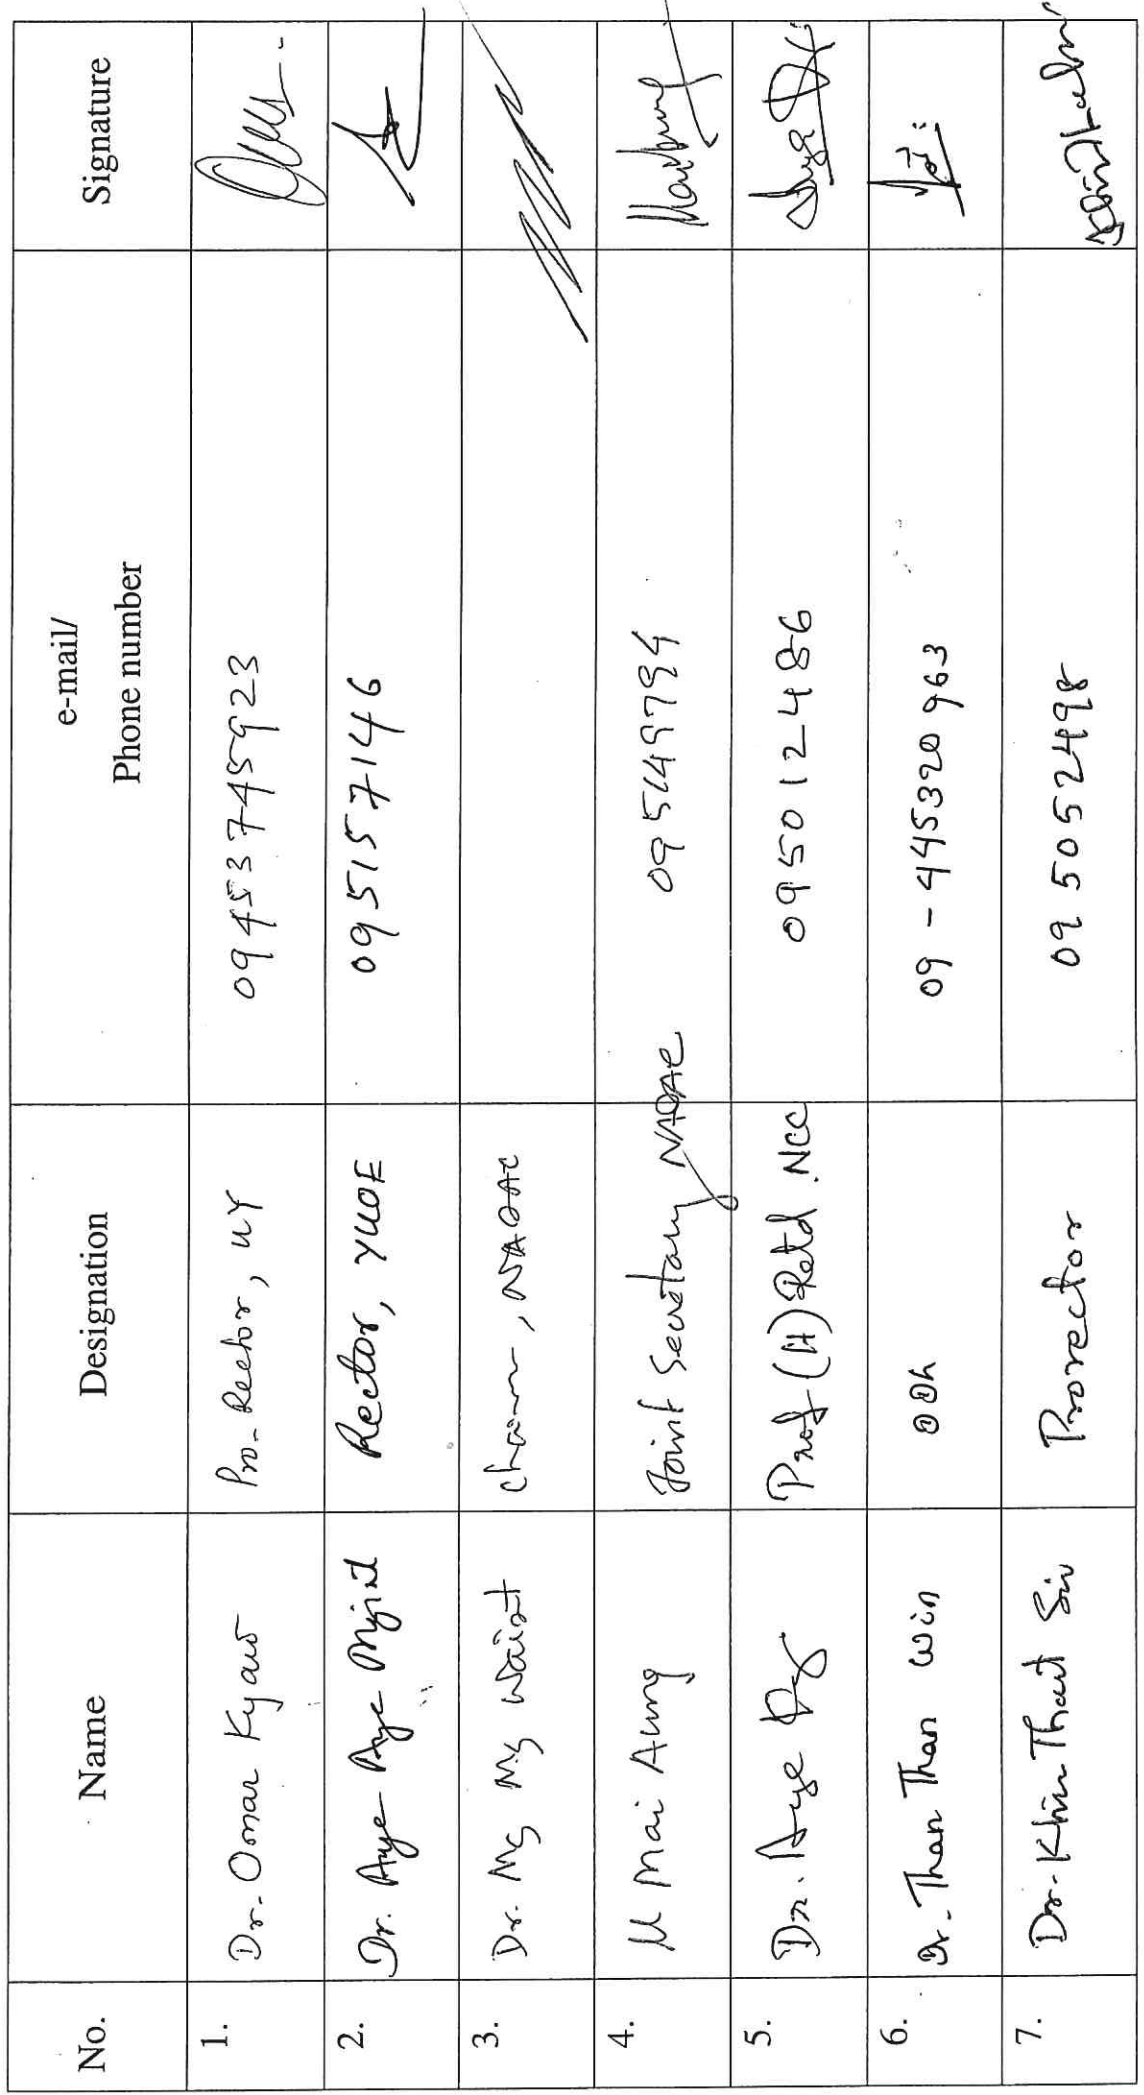 No. Name Designation e-mail/ Phone number Signature
1. Dr. Omar Kyaw Pro-Rector, UY 09453745923
2. Dr. Aye Aye Myint Rector, YUOE 095157146
3. Dr. Mg Mg Wint , NAQAC
4. U Mai Aung Joint Secretary NAQAC 095149794
5. Dr. Aye Prof (H) Retd. NCC 095012486
6. Dr. Than Than Win DDG 09-445320963
7. Dr. Khin Thant Sin Prorector 095052498